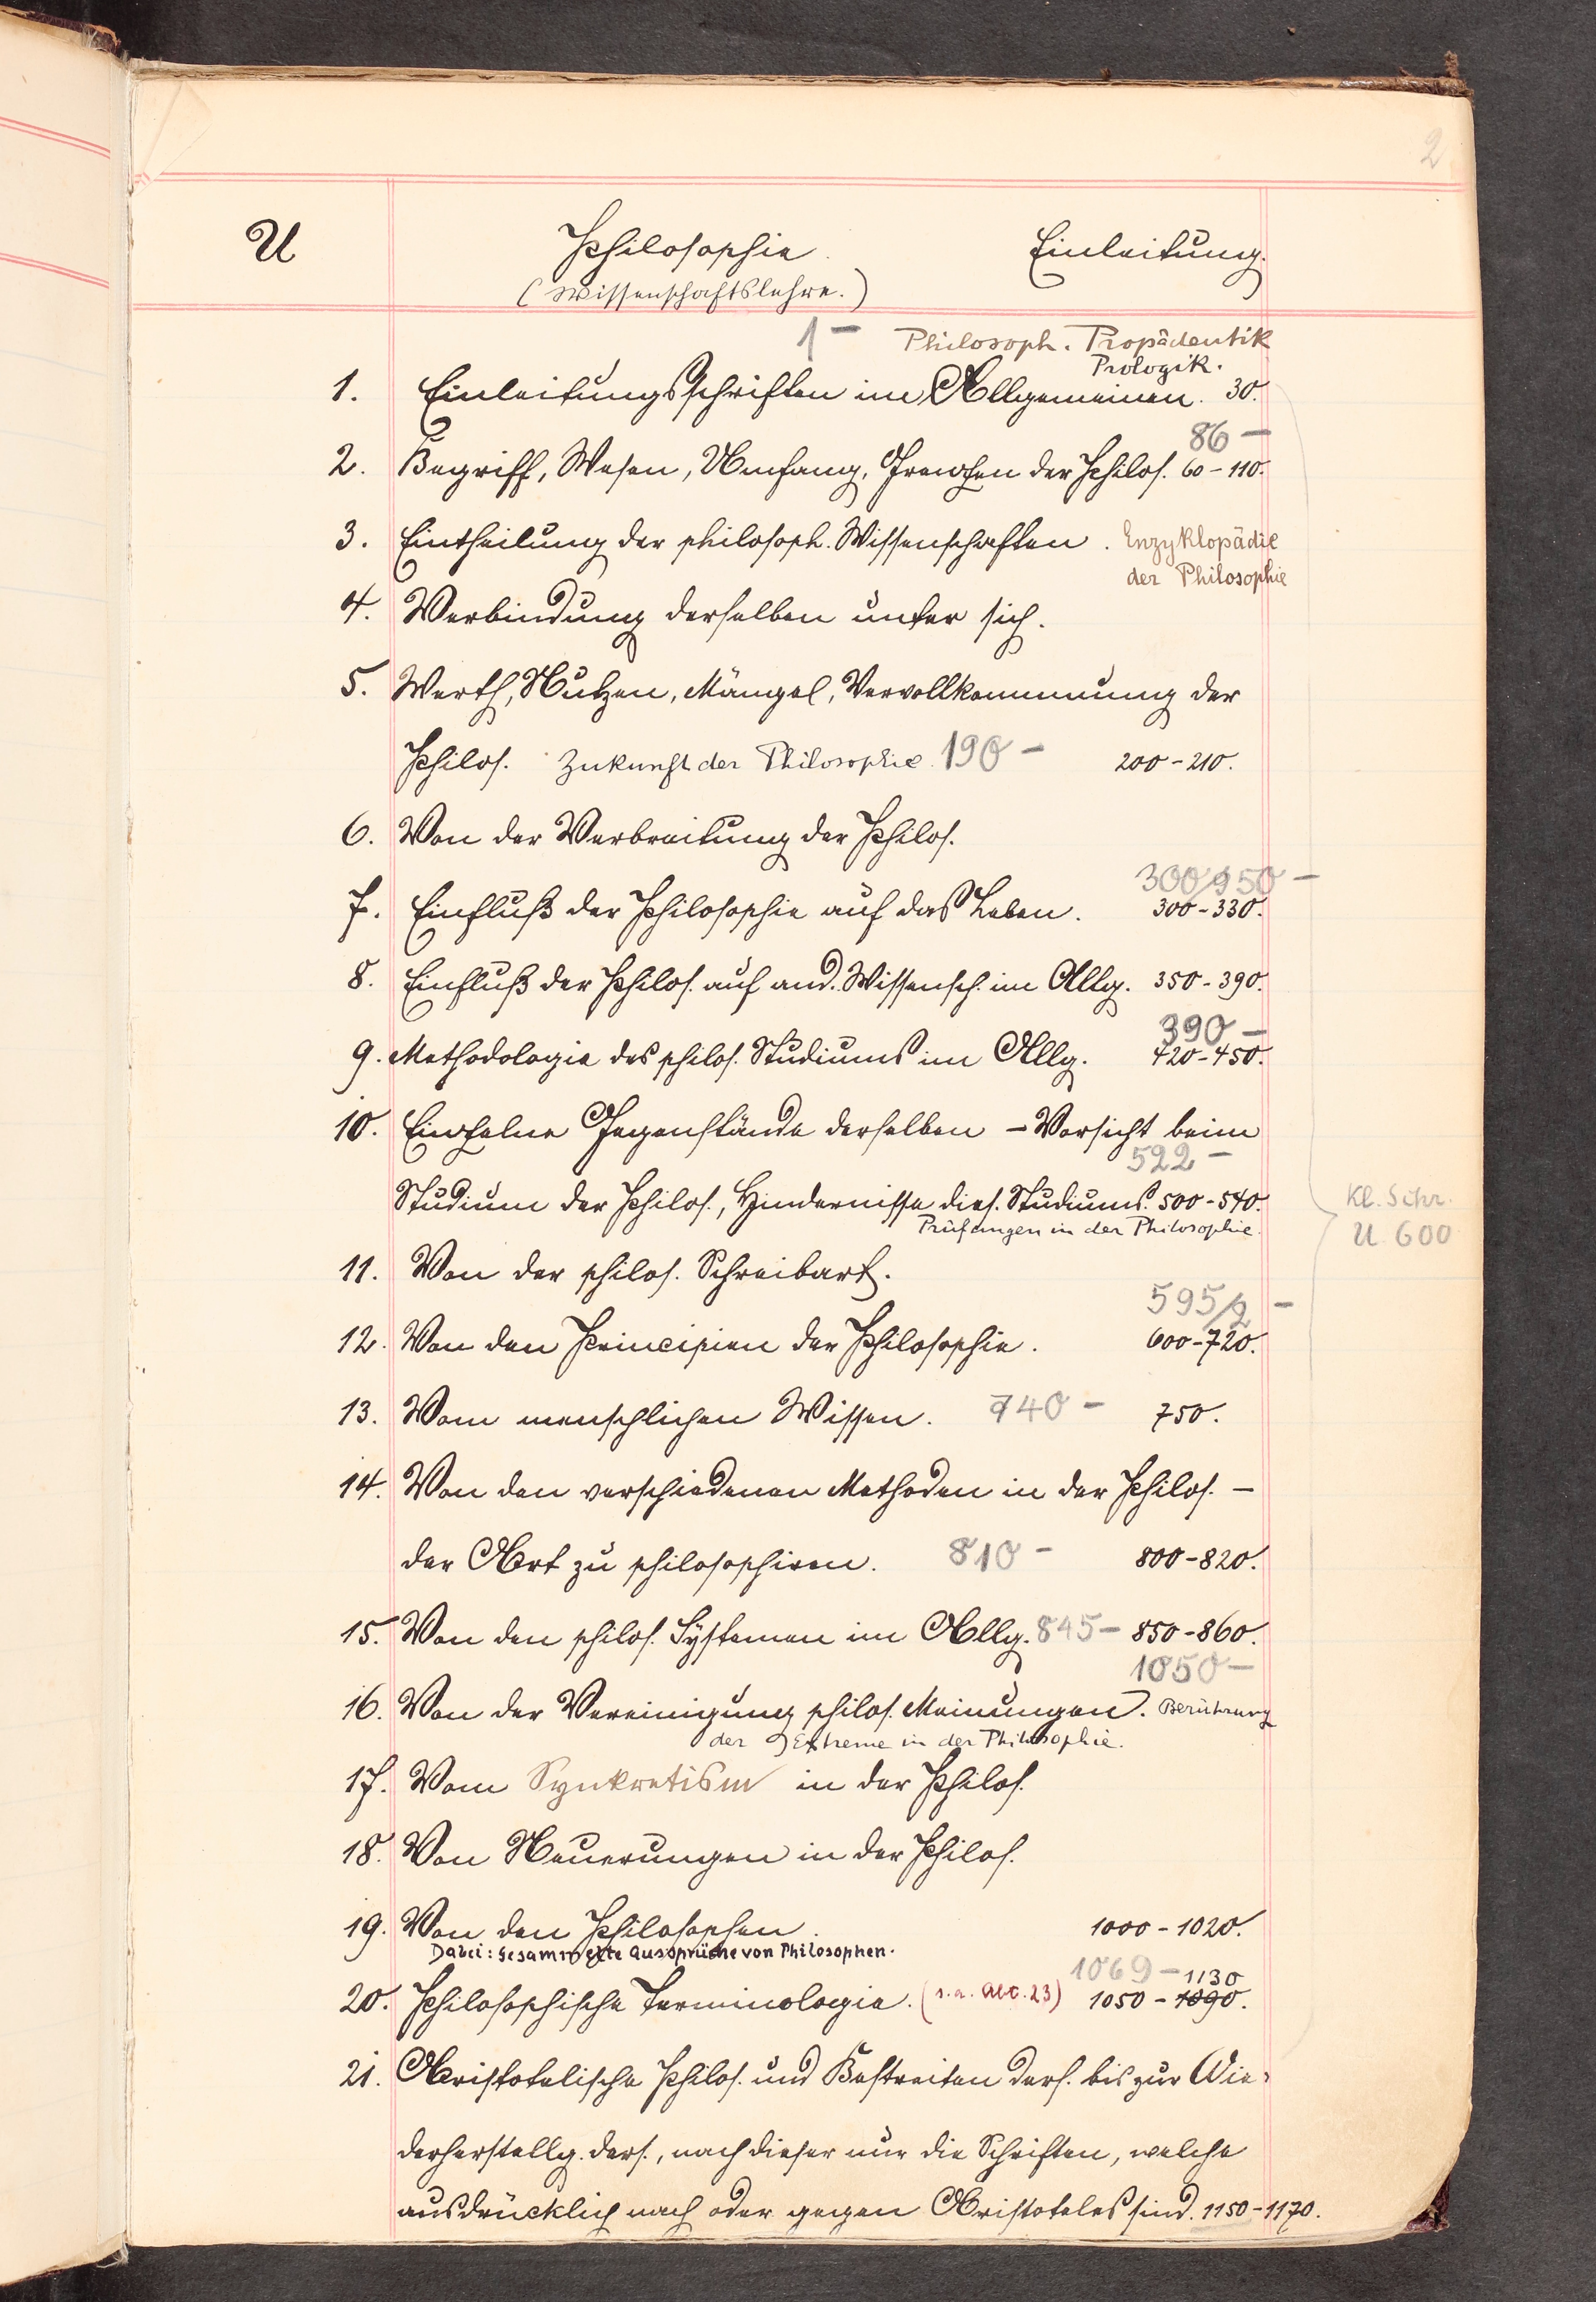 2
U Philosophie. Einleitung.
(Wissenschaftslehre.)
1 – Philosoph. Propädeutik
Prologik.
1. Einleitungsschriften im Allgemeinen. 30.
86 –
2. Begriff, Wesen, Umfang, Grenzen der Philos. 60 – 110.
3. Eintheilung der philosoph. Wissenschaften. Enzyklopädie
der Philosophie
4. Verbindung derselben unter sich.
5. Werth, Nutzen, Mängel, Vervollkommnung der
Philos. Zukunft der Philosophie. 190 – 200 – 210.
6. Von der Verbreitung der Philos.
300/950 –
7. Einfluß der Philosophie auf das Leben. 300 – 330.
8. Einfluß der Philos. auf and. Wissensch. im Allg. 350 – 390.
390 –
9. Methodologie des philos. Studiums im Allg. 420 – 450.
10. Einzelne Gegenstände derselben – Vorsicht beim
522 –
Studium der Philos., Hindernisse dies. Studiums. 500 – 540.
Kl. Schr.
U 600
Prüfungen in der Philosophie.
11. Von der philos. Schreibart.
595/2 –
12. Von den Principien der Philosophie. 600 – 720.
13. Vom menschlichen Wissen. 740 – 750.
14. Von den verschiedenen Methoden in der Philos. –
der Art zu philosophiren. 810 – 800 – 820.
15. Von den philos. Systemen im Allg. 845 – 850 – 860.
1050 –
16. Von der Vereinigung philos. Meinungen. Berührung
der Extreme in der Philosophie.
17. Vom Synkretism in der Philos.
18. Von Neuerungen in der Philos.
19. Von den Philosophen. 1000 – 1020.
Dabei: Gesammelte Aussprüche von Philosophen.
1069 – 1130
20. Philosophische Terminologie. (s. a. Abt. 23) 1050 – 1090.
21. Aristotelische Philos. und Bestreiten ders. bis zur Wie-
derherstellg. ders., nach dieser nur die Schriften, welche
ausdrücklich nach oder gegen Aristoteles sind. 1150 – 1170.